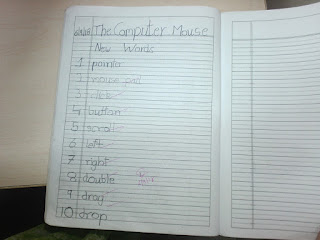 The Computer Mouse
New Words
1 pointer
2 mouse pad
3 click
4 button
5 scroll
6 left
7 right
8 double
9 drag
10 drop